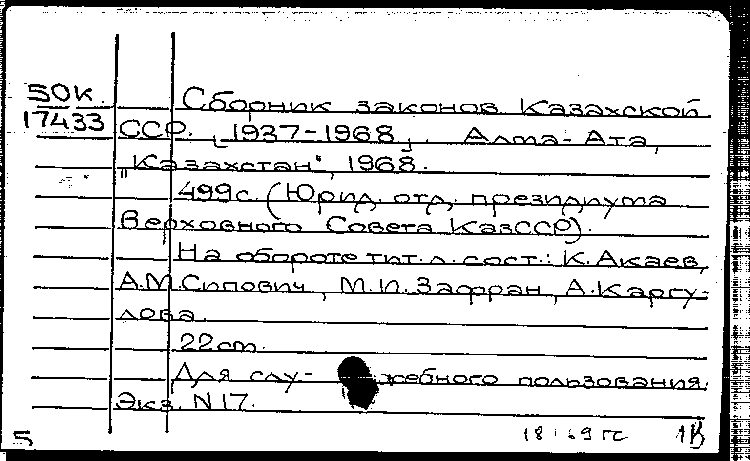 50к.
17433
Сборник законов Казахской
ССР. [1937-1968]. Алма-Ата,
"Казахстан", 1968.
499с. (Юрид. отд. президиума
Верховного Совета КазССР).
На обороте тит. л. сост.: К. Акаев,
А.М. Сипович, М.И. Зафран, А. Каргу-
лова.
22см.
Для слу- жебного пользования.
Экз. N 17.
5